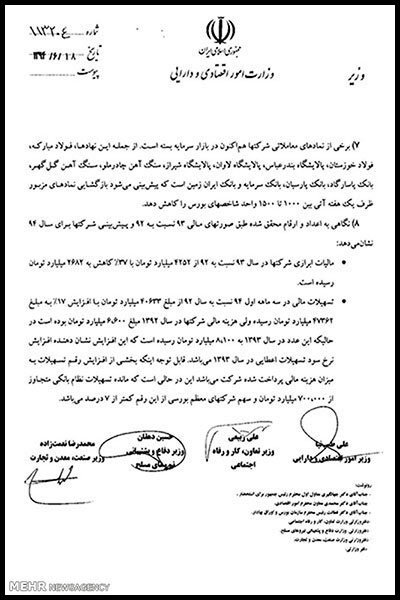 شماره ۱۱۳۲۰۶
تاریخ ۱۳۹۴/۶/۱۸
پیوست
جمهوری اسلامی ایران
وزارت امور اقتصادی و دارایی
وزیر
۷) برخی از نمادهای معاملاتی شرکتها هم‌اکنون در بازار سرمایه بسته است. از جمله این نهادها، فولاد مبارکه،
فولاد خوزستان، پالایشگاه بندرعباس، پالایشگاه لاوان، پالایشگاه شیراز، سنگ آهن چادرملو، سنگ آهن گل‌گهر،
بانک پاسارگاد، بانک پارسیان، بانک سرمایه و بانک ایران زمین است که پیش‌بینی می‌شود بازگشایی نمادهای مزبور
ظرف یک هفته آتی بین ۱۰۰۰ تا ۱۵۰۰ واحد شاخصهای بورس را کاهش دهد.
۸) نگاهی به اعداد و ارقام محقق شده طبق صورتهای مالی ۹۳ نسبت به ۹۲ و پیش‌بینی شرکتها برای سال ۹۴
نشان‌می‌دهد:
• مالیات ابرازی شرکتها در سال ۹۳ نسبت به ۹۲ از ۴۲۵۲ میلیارد تومان با ۳۷٪ کاهش به ۲۶۸۲ میلیارد تومان
رسیده است.
• تسهیلات مالی در سه ماهه اول ۹۴ نسبت به سال ۹۲ از مبلغ ۴۰۶۳۳ میلیارد تومان با افزایش ۱۷٪ به مبلغ
۴۷۳۶۲ میلیارد تومان رسیده ولی هزینه مالی شرکتها در سال ۱۳۹۲ مبلغ ۶،۶۰۰ میلیارد تومان بوده است در
حالیکه این عدد در سال ۱۳۹۳ به ۸،۱۰۰ میلیارد تومان رسیده است که این افزایش نشان دهنده افزایش
نرخ سود تسهیلات اعطایی در سال ۱۳۹۳ می‌باشد. قابل توجه اینکه بخشی از افزایش رقم تسهیلات به
میزان هزینه مالی پرداخت شده شرکت می‌باشد این در حالی است که مانده تسهیلات نظام بانکی متجاوز
از ۷۰۰،۰۰۰ میلیارد تومان و سهم شرکتهای معظم بورسی از این رقم کمتر از ۷ درصد می‌باشد.
علی طیب‌نیا
وزیر امور اقتصادی و دارایی
علی ربیعی
وزیر تعاون، کار و رفاه
اجتماعی
حسین دهقان
وزیر دفاع و پشتیبانی
نیروهای مسلح
محمدرضا نعمت‌زاده
وزیر صنعت، معدن و تجارت
رونوشت:
- جناب آقای دکتر جهانگیری معاون اول محترم رئیس جمهور برای استحضار.
- جناب آقای دکتر
- جناب آقای دکتر فطانت رئیس محترم سازمان بورس و اوراق بهادار.
- دفتر وزارتی وزارت تعاون، کار و رفاه اجتماعی
- دفتر وزارتی وزارت دفاع و پشتیبانی نیروهای مسلح.
- دفتر وزارتی وزارت صنعت، معدن و تجارت.
- دفتر وزارتی.
MEHR NEWSAGENCY